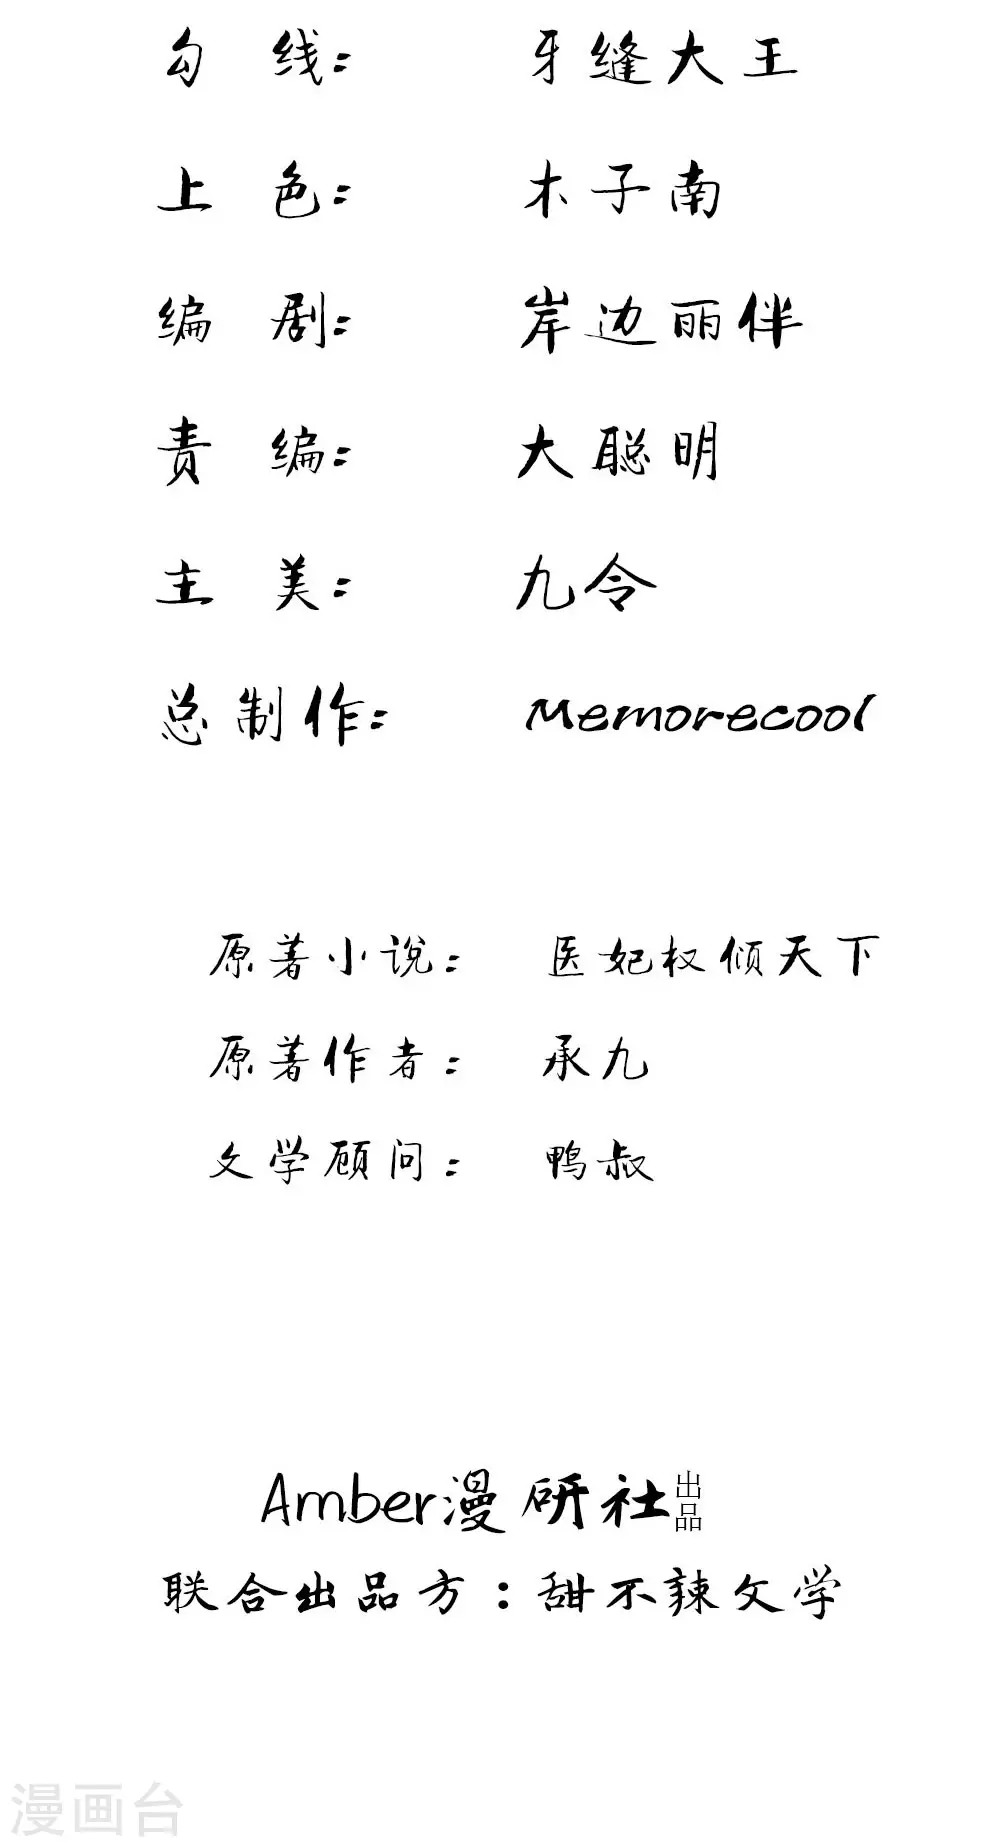 勾线：牙缝大王
上色：木子南
编剧：岸边丽伴
责编：大聪明
主美：九令
总制作：Memorecool
原著小说：医妃权倾天下
原著作者：承九
文学顾问：鸭叔
Amber漫研社出品
联合出品方：甜不辣文学
漫画台